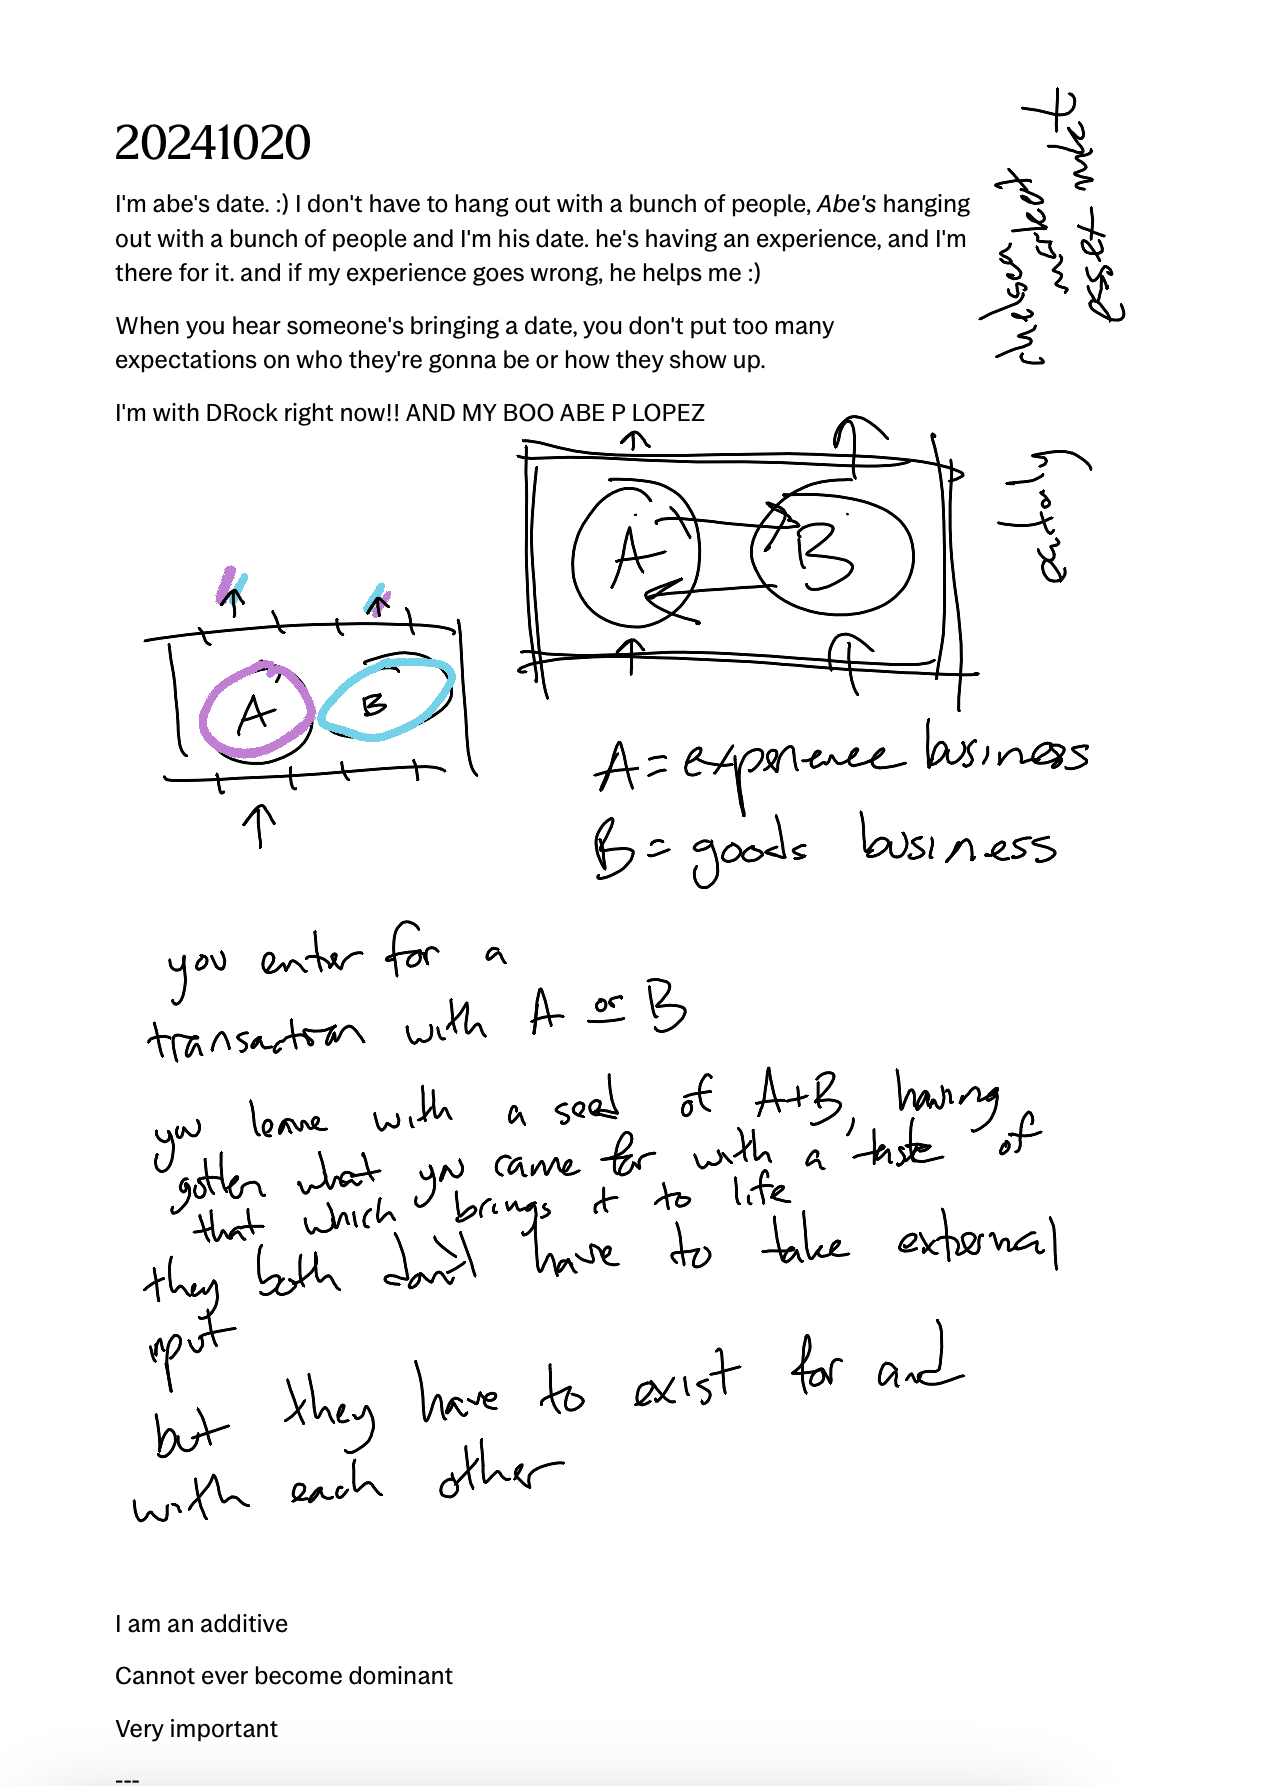 20241020
I'm abe's date. :) I don't have to hang out with a bunch of people, Abe's hanging
out with a bunch of people and I'm his date. he's having an experience, and I'm
there for it. and if my experience goes wrong, he helps me :)
When you hear someone's bringing a date, you don't put too many
expectations on who they're gonna be or how they show up.
I'm with DRock right now!! AND MY BOO ABE P LOPEZ
chelsea
market
eataly
A B
A B
A = experience business
B = goods business
you enter for a
transaction with A or B
you leave with a seed of A+B, having
gotten what you came for with a taste of
that which brings it to life
they both don't have to take external
input
but they have to exist for and
with each other
I am an additive
Cannot ever become dominant
Very important
---